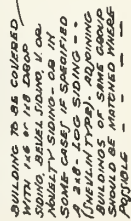 BUILDING TO BE COVERED
WITH 1x6 or 1x8 DROP
SIDING, BEVEL SIDING, V. OR
NOVELTY SIDING - OR IN
SOME CASES IF SPECIFIED
A 2x8 - LOG SIDING - -
(SHEVLIN TYPE). ADJOINING
BUILDINGS OF SAME GROUP
SHOULD BE MATCHED WHERE
POSSIBLE - - - -